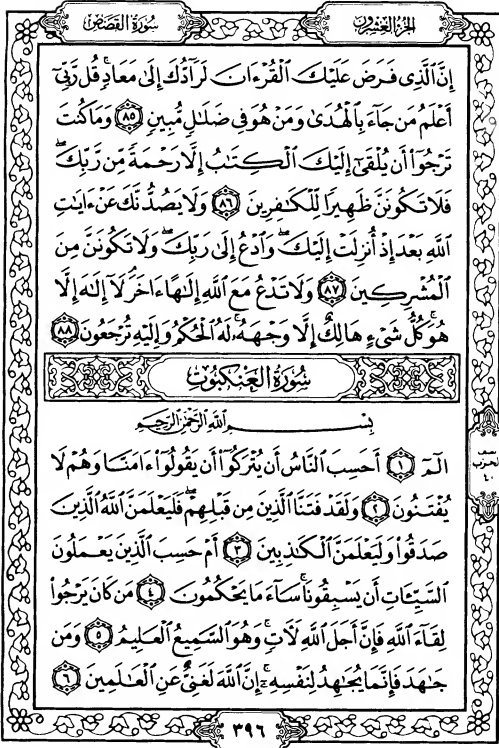 الجزء العشرون
سورة القصص
إِنَّ ٱلَّذِى فَرَضَ عَلَيْكَ ٱلْقُرْءَانَ لَرَآدُّكَ إِلَىٰ مَعَادٍ ۚ قُل رَّبِّىٓ
أَعْلَمُ مَن جَآءَ بِٱلْهُدَىٰ وَمَنْ هُوَ فِى ضَلَٰلٍ مُّبِينٍ ٨٥ وَمَا كُنتَ
تَرْجُوٓا۟ أَن يُلْقَىٰٓ إِلَيْكَ ٱلْكِتَٰبُ إِلَّا رَحْمَةً مِّن رَّبِّكَ ۖ
فَلَا تَكُونَنَّ ظَهِيرًا لِّلْكَٰفِرِينَ ٨٦ وَلَا يَصُدُّنَّكَ عَنْ ءَايَٰتِ
ٱللَّهِ بَعْدَ إِذْ أُنزِلَتْ إِلَيْكَ ۖ وَٱدْعُ إِلَىٰ رَبِّكَ ۖ وَلَا تَكُونَنَّ مِنَ
ٱلْمُشْرِكِينَ ٨٧ وَلَا تَدْعُ مَعَ ٱللَّهِ إِلَٰهًا ءَاخَرَ ۘ لَآ إِلَٰهَ إِلَّا
هُوَ ۚ كُلُّ شَىْءٍ هَالِكٌ إِلَّا وَجْهَهُۥ ۚ لَهُ ٱلْحُكْمُ وَإِلَيْهِ تُرْجَعُونَ ٨٨
سُورَةُ العَنكَبُوت
بِسْمِ ٱللَّهِ ٱلرَّحْمَٰنِ ٱلرَّحِيمِ
الٓمٓ ١ أَحَسِبَ ٱلنَّاسُ أَن يُتْرَكُوٓا۟ أَن يَقُولُوٓا۟ ءَامَنَّا وَهُمْ لَا
يُفْتَنُونَ ٢ وَلَقَدْ فَتَنَّا ٱلَّذِينَ مِن قَبْلِهِمْ ۖ فَلَيَعْلَمَنَّ ٱللَّهُ ٱلَّذِينَ
صَدَقُوا۟ وَلَيَعْلَمَنَّ ٱلْكَٰذِبِينَ ٣ أَمْ حَسِبَ ٱلَّذِينَ يَعْمَلُونَ
ٱلسَّيِّـَٔاتِ أَن يَسْبِقُونَا ۚ سَآءَ مَا يَحْكُمُونَ ٤ مَن كَانَ يَرْجُوا۟
لِقَآءَ ٱللَّهِ فَإِنَّ أَجَلَ ٱللَّهِ لَءَاتٍ ۚ وَهُوَ ٱلسَّمِيعُ ٱلْعَلِيمُ ٥ وَمَن
جَٰهَدَ فَإِنَّمَا يُجَٰهِدُ لِنَفْسِهِۦٓ ۚ إِنَّ ٱللَّهَ لَغَنِىٌّ عَنِ ٱلْعَٰلَمِينَ ٦
نصف
الحزب
٤٠
٣٩٦